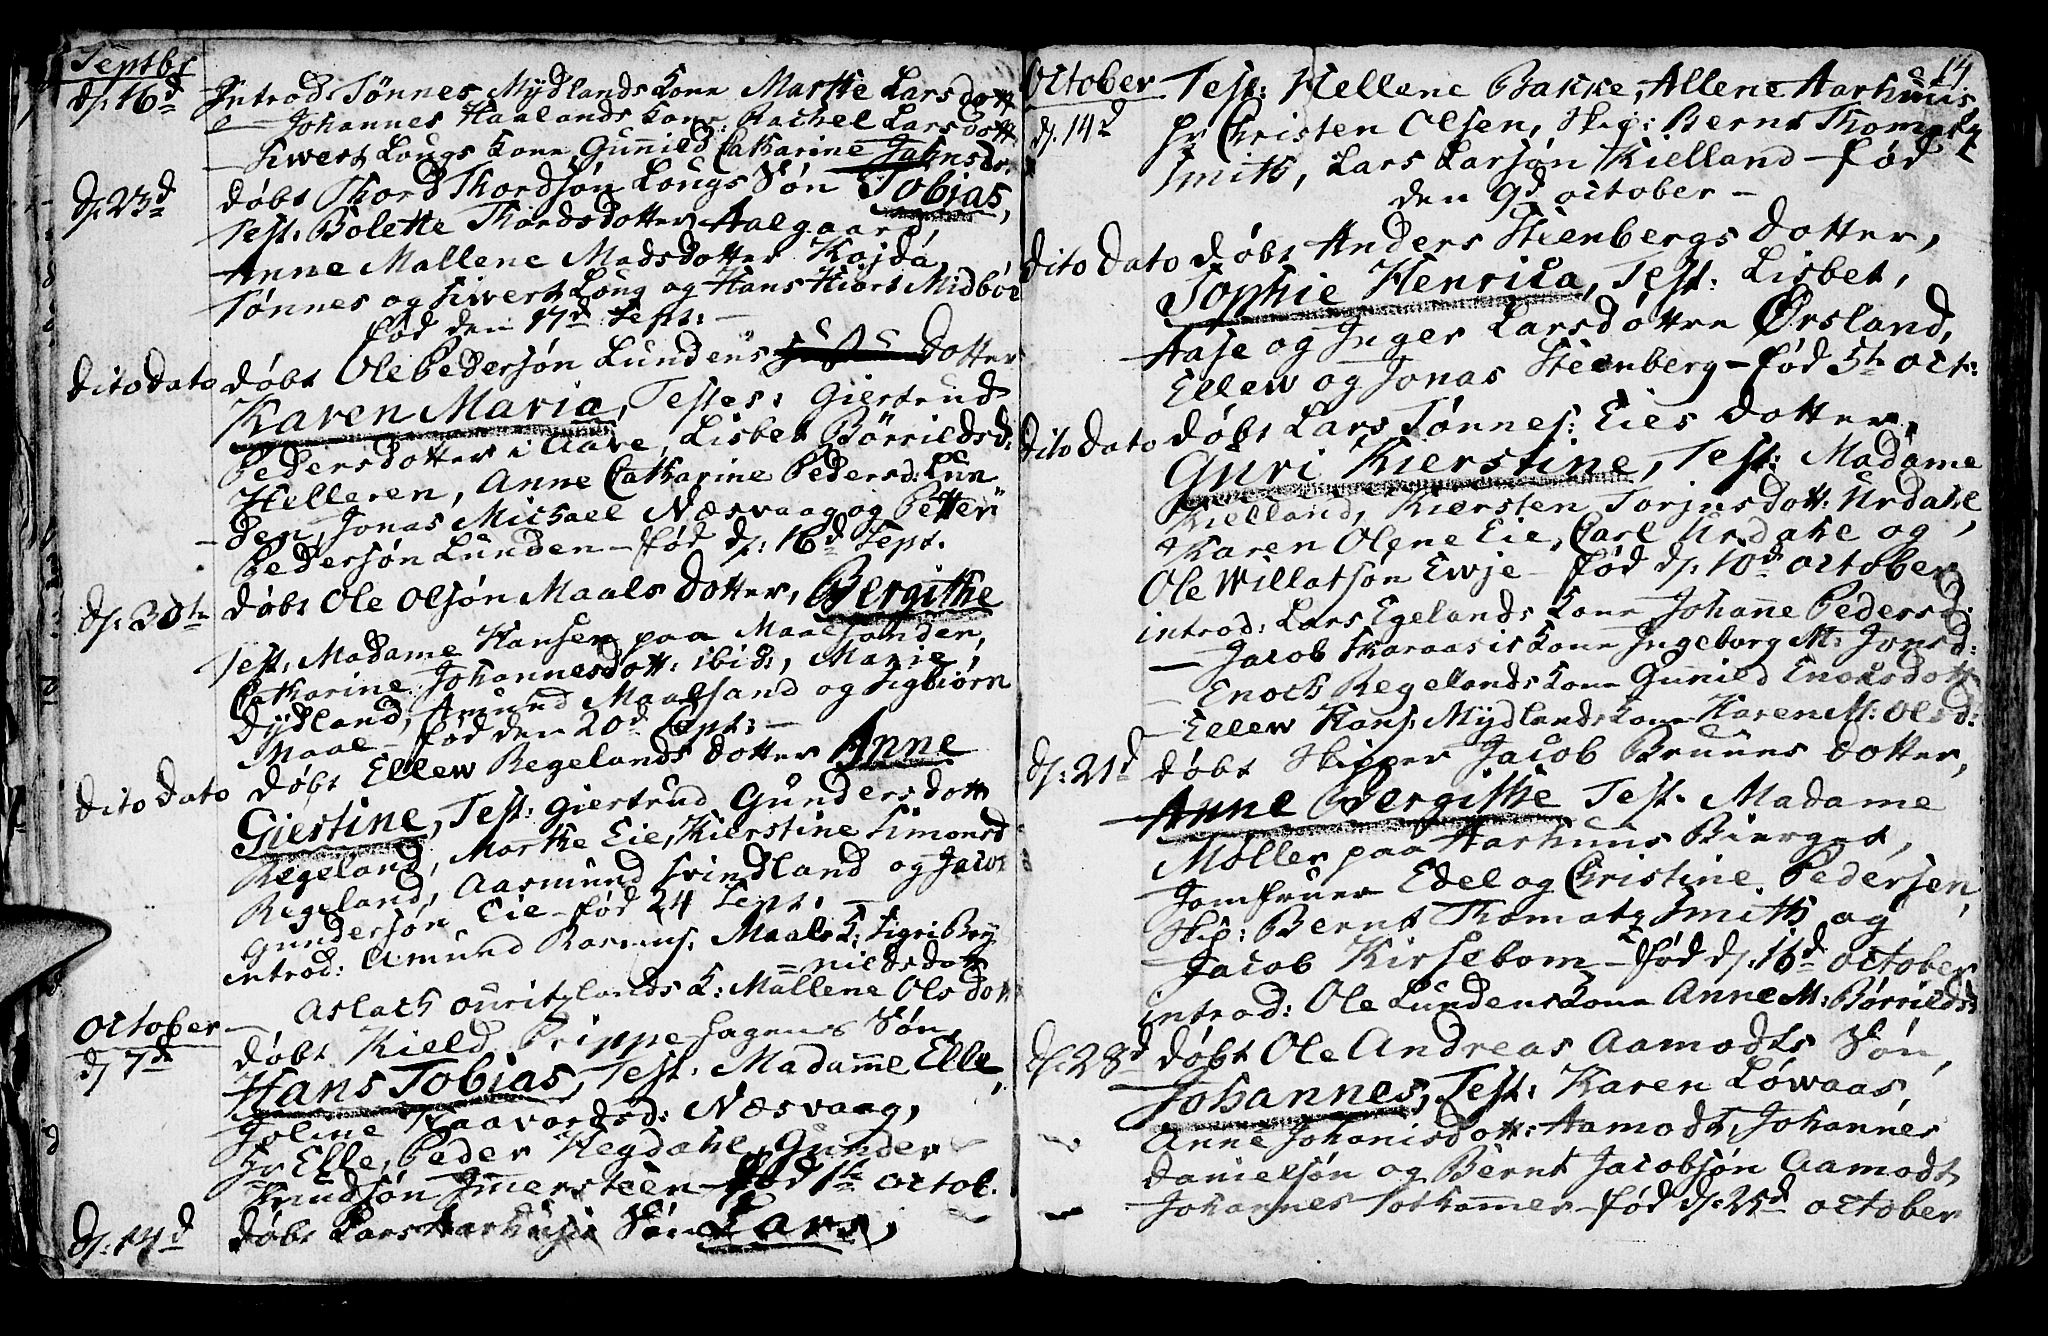 Septbr
d: 16d Introd. Tønnes Mydlands Kone Marthe Larsdott
— Johannes Haalands Kone Rachel Larsdott
— Siwert Lougs Kone Gunnild Catharine Johnsdr.
d: 23d døbt Thord Thordsøn Lougs Søn Tobias,
Test: Bolette Thordsdotter Aalgaard,
Anne Mallene Madsdotter Kojda,
Tønnes og Siwert Loug og Hans Hiort Midbøe
fød den 17d Sept: —
dito dato døbt Ole Pedersøn Lundens Dotter
Karen Maria, Testes: Giertrud
Pedersdotter i Aave, Lisbet Børrildsd:
Helleren, Anne Catharine Pedersd: Lun
den, Jonas Michael Næsvaag og Petter
Pedersøn Lunden — fød d: 16d Sept.
d: 30te døbt Ole Olsøn Maals Dotter, Bergithe
Test: Madame Hansen paa Maalsanden,
Catharine Johannesdott: ibid:, Marie
Dydland, Amund Maalsand og Sigbiørn
Maal — fød den 20d Sept: —
dito dato døbt Ellew Regelands Dotter Anne
Giestine, Test: Giertrud Gundersdott
Regeland, Marthe Eie, Kierstine Simonsd
Regeland, Aasmund Svindland og Jacob
Gundersøn Eie — fød 24 Sept. —
introd: Amund Rasmus: Maals K: Sigri Bry
=nildsdott
— Aslach Ouritzlands K: Mallene Olsdott
October
d 7d døbt Kield Trippe Fagens Søn,
Hans Tobias, Test: Madamme Elle,
Joline Haavordsd: Næsvaag,
Hr Elle, Peder Hegdahl, Gunder
Knudsøn Immersteen — fød 1te octob.
d: 14d døbt Lars Aarhusis Søn Lars,
14
October Test: Hellene Bakke, Allene Aarhuus,
d. 14d Hr Christen Olsen, Skip: Bernt Thomatz
Smith, Lars Larsøn Kielland — fød
den 9d october —
dito dato døbt Anders Stenbergs Dotter,
Sophie Henrica, Test: Lisbet,
Aase og Inger Larsdottre Ørsland,
Ellew og Jonas Steenberg — fød 5te oct:
dito dato døbt Lars Tønnes: Eies Dotter,
Guri Kierstine, Test: Madame
Kielland, Kiersten Torjusdott: Urdahl
Karen Olene Eie, Carl Urdahl og
Ole Willatsøn Ewje — fød d: 10d october
introd: Lars Egelands Kone Johanne Pedersd:
— Jacob Skaraasis Kone Ingeborg M: Jonsd:
— Enoch Regelands Kone Gunild Enoksdott
— Ellew Hans: Mydlands Kone Karen M: Olsd:
d: 21d døbt Skipper Jacob Bruuns Dotter,
Anne Bergithe Test. Madame
Møller paa Aarhuus Bierget,
Jomfruer Edel og Christine Pedersen,
Skip: Bernt Thomatz Smith og
Jacob Kirsebom — fød d: 16d october
introd: Ole Lundens Kone Anne M: Børrildsd
d: 28d døbt Ole Andreas Aamodts Søn,
Johannes, Test: Karen Løwaas,
Anne Johanisdott: Aamodt, Johannes
Danielsøn og Bernt Jacobsøn Aamodt
Johannes Tothammer — fød d: 25d october